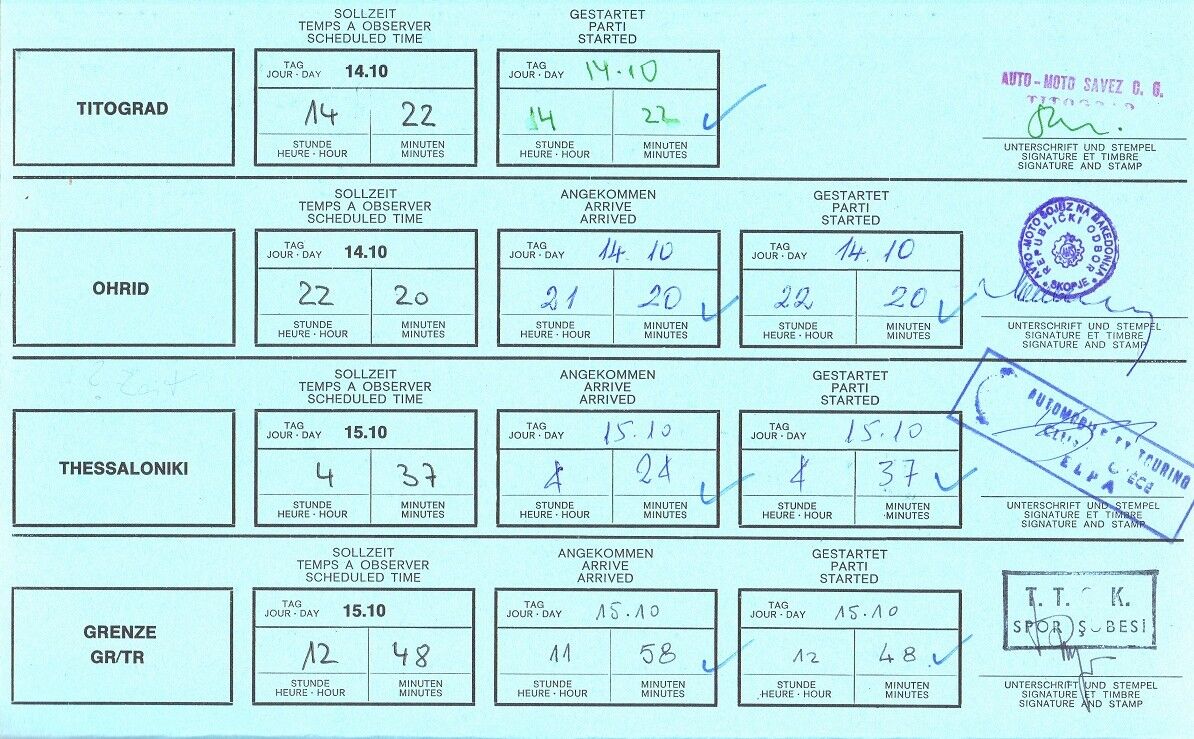 SOLLZEIT
TEMPS A OBSERVER
SCHEDULED TIME
GESTARTET
PARTI
STARTED
TITOGRAD
TAG
JOUR · DAY 14.10
14 22
STUNDE
HEURE · HOUR
MINUTEN
MINUTES
TAG
JOUR · DAY 14.10
14 22
STUNDE
HEURE · HOUR
MINUTEN
MINUTES
AUTO-MOTO SAVEZ C. G.
TITOGRAD
UNTERSCHRIFT UND STEMPEL
SIGNATURE ET TIMBRE
SIGNATURE AND STAMP
SOLLZEIT
TEMPS A OBSERVER
SCHEDULED TIME
ANGEKOMMEN
ARRIVE
ARRIVED
GESTARTET
PARTI
STARTED
OHRID
TAG
JOUR · DAY 14.10
22 20
STUNDE
HEURE · HOUR
MINUTEN
MINUTES
TAG
JOUR · DAY 14. 10
21 20
STUNDE
HEURE · HOUR
MINUTEN
MINUTES
TAG
JOUR · DAY 14.10
22 20
STUNDE
HEURE · HOUR
MINUTEN
MINUTES
AVTO-MOTO SOJUZ NA MAKEDONIJA
REPUBLIČKI ODBOR
SKOPJE
UNTERSCHRIFT UND STEMPEL
SIGNATURE ET TIMBRE
SIGNATURE AND STAMP
? Zeit
SOLLZEIT
TEMPS A OBSERVER
SCHEDULED TIME
ANGEKOMMEN
ARRIVE
ARRIVED
GESTARTET
PARTI
STARTED
THESSALONIKI
TAG
JOUR · DAY 15.10
4 37
STUNDE
HEURE · HOUR
MINUTEN
MINUTES
TAG
JOUR · DAY 15.10
4 24
STUNDE
HEURE · HOUR
MINUTEN
MINUTES
TAG
JOUR · DAY 15.10
4 37
STUNDE
HEURE · HOUR
MINUTEN
MINUTES
AUTOMOBILE ET TOURING
ELPA
UNTERSCHRIFT UND STEMPEL
SIGNATURE ET TIMBRE
SIGNATURE AND STAMP
SOLLZEIT
TEMPS A OBSERVER
SCHEDULED TIME
ANGEKOMMEN
ARRIVE
ARRIVED
GESTARTET
PARTI
STARTED
GRENZE
GR/TR
TAG
JOUR · DAY 15.10
12 48
STUNDE
HEURE · HOUR
MINUTEN
MINUTES
TAG
JOUR · DAY 15.10
11 58
STUNDE
HEURE · HOUR
MINUTEN
MINUTES
TAG
JOUR · DAY 15.10
12 48
STUNDE
HEURE · HOUR
MINUTEN
MINUTES
T. T. K.
SPOR ŞUBESİ
UNTERSCHRIFT UND STEMPEL
SIGNATURE ET TIMBRE
SIGNATURE AND STAMP